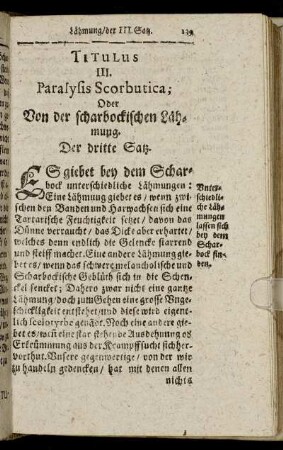 Lähmung/der III. Satz. 139
TITULUS
III.
Paralysis Scorbutica;
Oder
Von der scharbockischen Läh-
mung.
Der dritte Satz.
ES giebet bey dem Schar-
bock unterschiedliche Lähmungen:
Eine Lähmung giebet es / wenn zwi-
schen den Banden und Harwachsen sich eine
Tartarische Feuchtigkeit setzet / davon das
Dünne verraucht / das Dicke aber erhartet /
welches denn endlich die Gelencke starrend
und steiff machet. Eine andere Lähmung gie-
bet es / wenn das schwere melancholische und
Scharbockische Geblüth sich in die Schen-
ckel sencket; Dahero zwar nicht eine gantze
Lähmung / doch zum Gehen eine grosse Unge-
schickligkeit entstehet / und diese wird eigent-
lich scelotyrbe genañt. Noch eine andere gie-
bet es / wañ eine starckehende Ausdehnung od
Erkrümmung aus der Krampffsucht sich her-
vorthut. Unsere gegenwertige / von der wir
zu handeln gedencken / hat mit denen allen
nichts
Unter-
schiedli-
che Läh-
mungen
lassen sich
bey dem
Schar-
bock fin-
den.